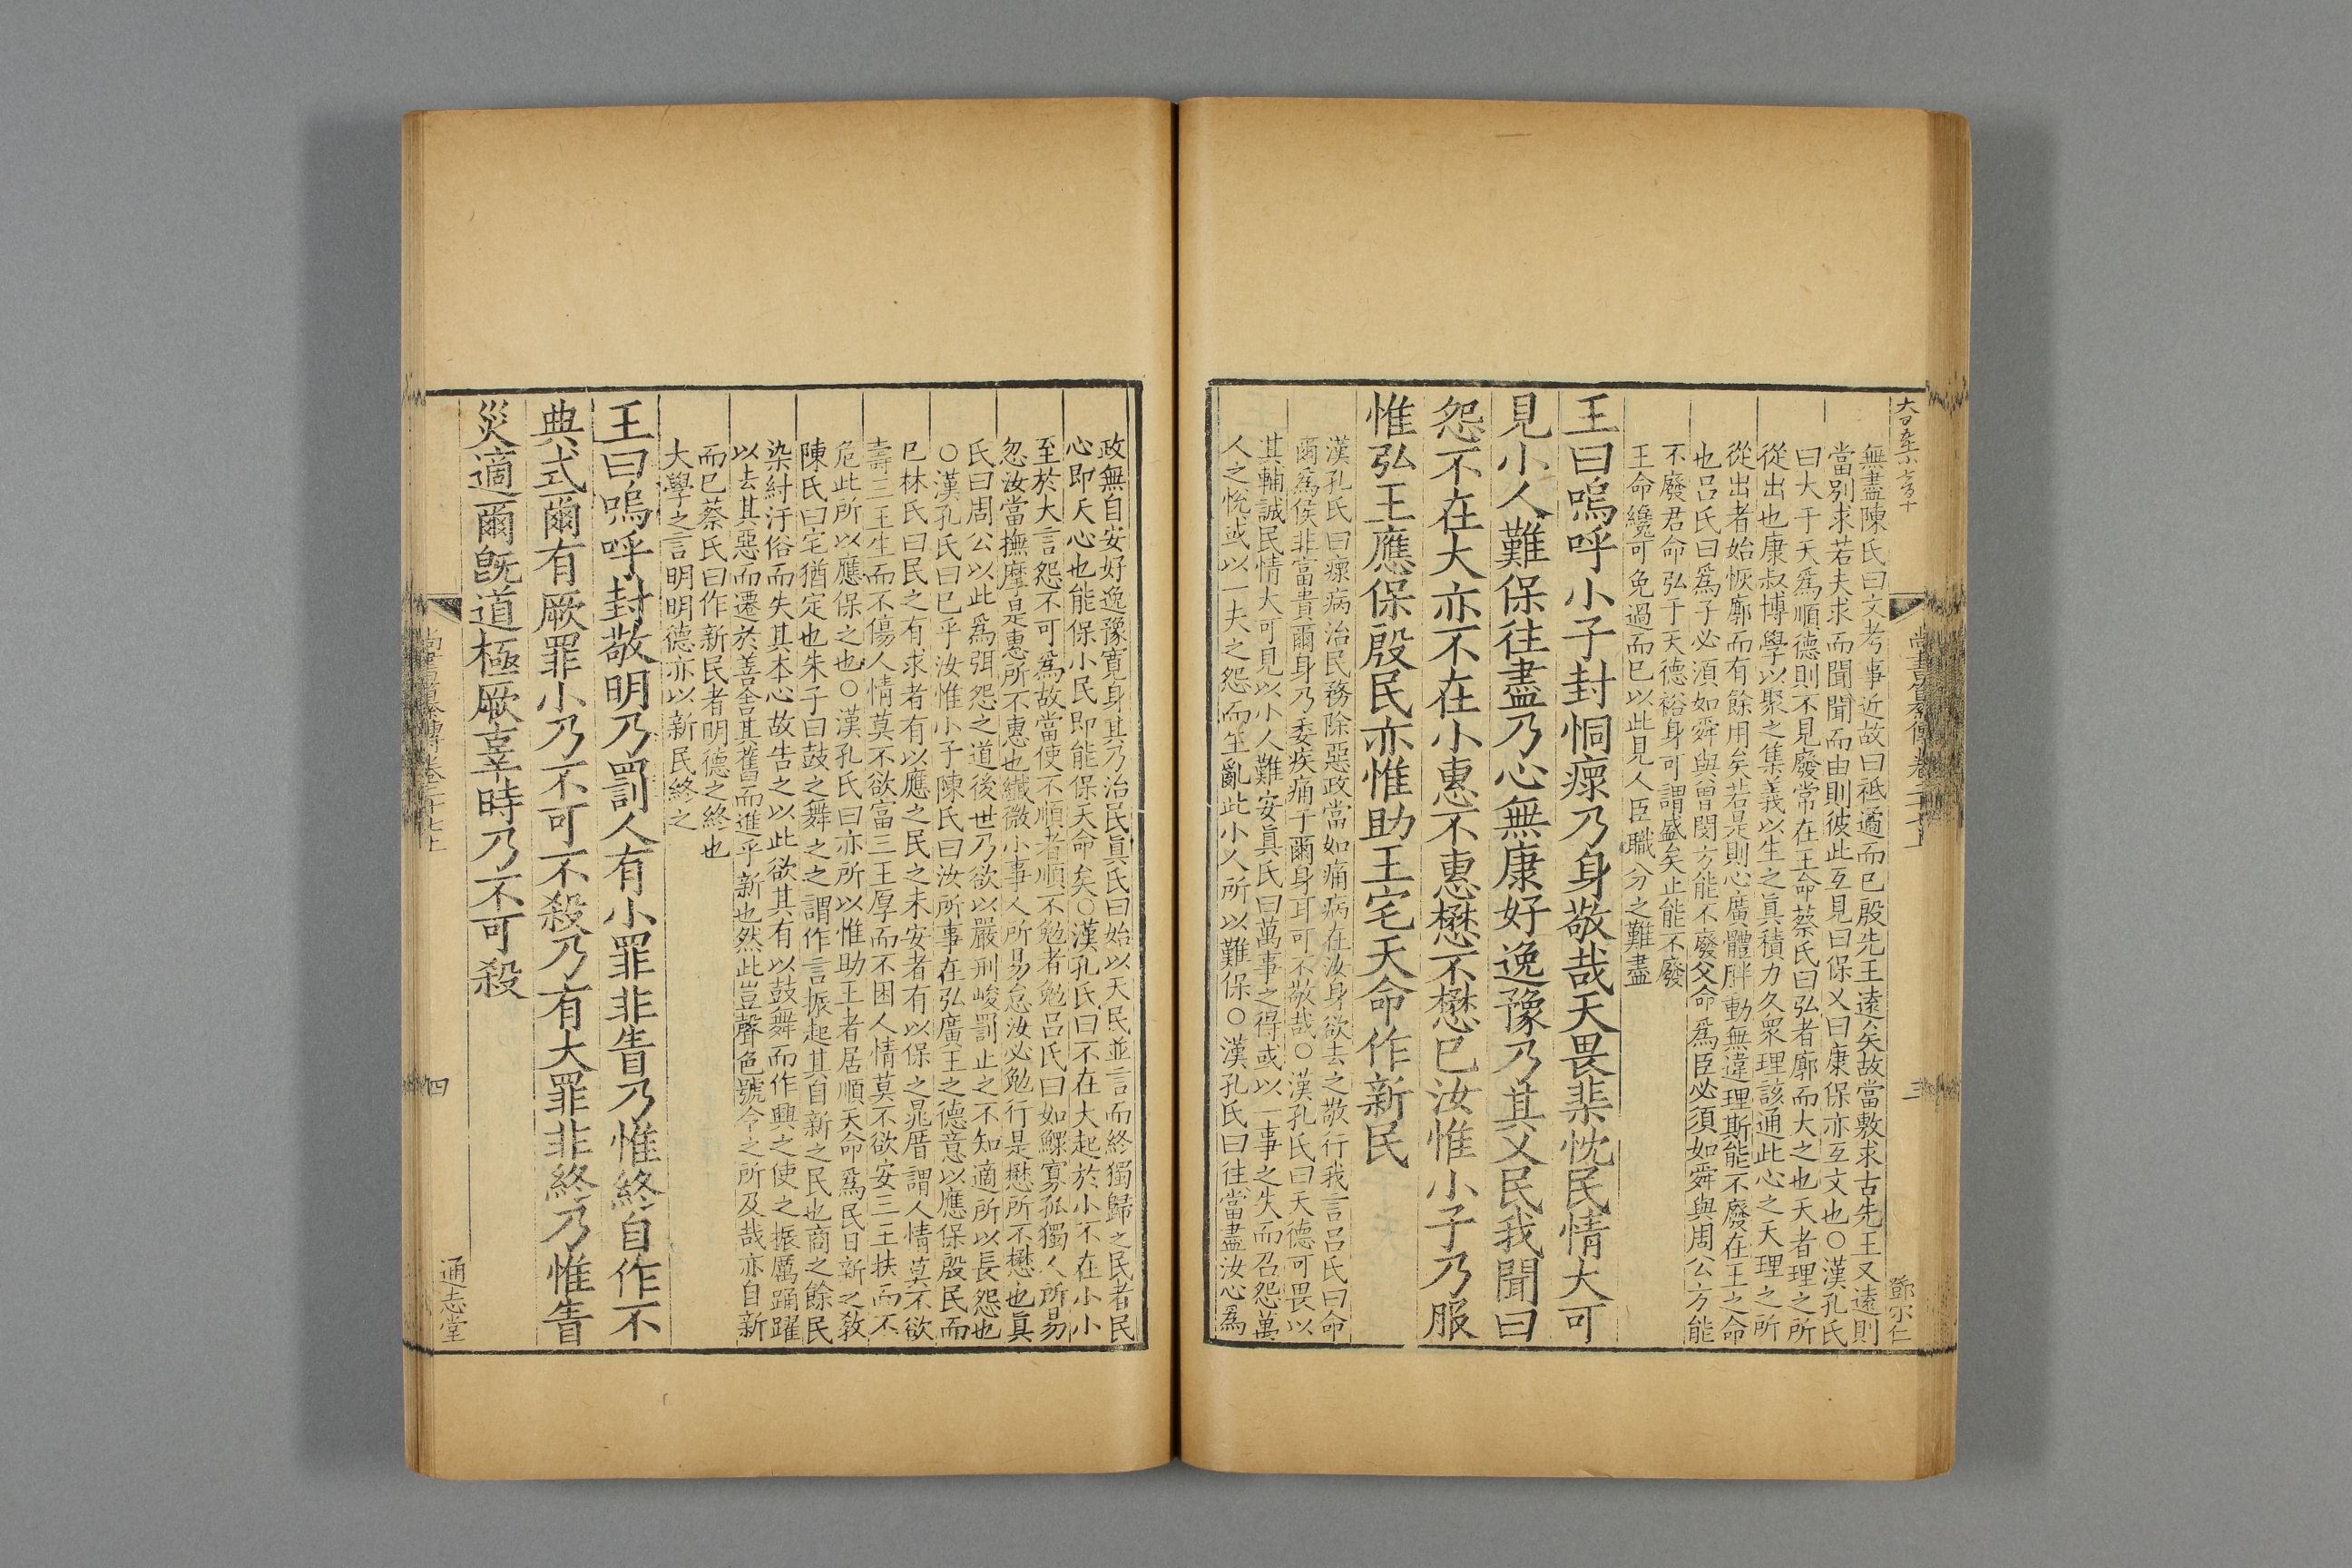 無盡陳氏曰文考事近故曰祗遹而已殷先王遠矣故當敷求古先王又遠則
當別求若夫求而聞聞而由則彼此互見曰保乂曰康保亦互文也○漢孔氏
曰大于天爲順德則不見廢常在王命蔡氏曰弘者廓而大之也天者理之所
從出也康叔博學以聚之集義以生之眞積力久衆理該通此心之天理之所
從出者始恢廓而有餘用矣若是則心廣體胖動無違理斯能不廢在王之命
也呂氏曰爲子必須如舜與曾閔方能不廢父命爲臣必須如舜與周公方能
不廢君命弘于天德裕身可謂盛矣止能不廢
王命纔可免過而已以此見人臣職分之難盡
王曰嗚呼小子封恫瘝乃身敬哉天畏棐忱民情大可
見小人難保往盡乃心無康好逸豫乃其乂民我聞曰
怨不在大亦不在小惠不惠懋不懋已汝惟小子乃服
惟弘王應保殷民亦惟助王宅天命作新民
漢孔氏曰瘝病治民務除惡政當如痛病在汝身欲去之敬行我言呂氏曰命
爾爲侯非富貴爾身乃委疾痛于爾身耳可不敬哉○漢孔氏曰天德可畏以
其輔誠民情大可見以小人難安眞氏曰萬事之得或以一事之失而召怨萬
人之悅或以一夫之怨而生亂此小人所以難保○漢孔氏曰往當盡汝心爲
鄧宗仁
三
政無自安好逸豫寛身其乃治民眞氏曰始以天民並言而終獨歸之民者民
心即天心也能保小民即能保天命矣○漢孔氏曰不在大起於小不在小小
至於大言怨不可爲故當使不順者順不勉者勉呂氏曰如鰥寡孤獨人所易
忽汝當撫摩是惠所不惠也纖微小事人所易怠汝必勉行是懋所不懋也眞
氏曰周公以此爲弭怨之道後世乃欲以嚴刑峻罰止之不知適所以長怨也
○漢孔氏曰已乎汝惟小子陳氏曰汝所事在弘廣王之德意以應保殷民而
已林氏曰民之有求者有以應之民之未安者有以保之鼂厝謂人情莫不欲
壽三王生而不傷人情莫不欲富三王厚而不困人情莫不欲安三王扶而不
危此所以應保之也○漢孔氏曰亦所以惟助王者居順天命爲民日新之敎
陳氏曰宅猶定也朱子曰鼓之舞之之謂作言振起其自新之民也商之餘民
染紂汙俗而失其本心故告之以此欲其有以鼓舞而作興之使之振厲踊躍
以去其惡而遷於善舍其舊而進乎新也然此豈聲色號令之所及哉亦自新
而已蔡氏曰作新民者明德之終也
大學之言明明德亦以新民終之
王曰嗚呼封敬明乃罰人有小罪非眚乃惟終自作不
典式爾有厥罪小乃不可不殺乃有大罪非終乃惟眚
災適爾旣道極厥辜時乃不可殺
尚書纂傳卷二十七上
四
通志堂